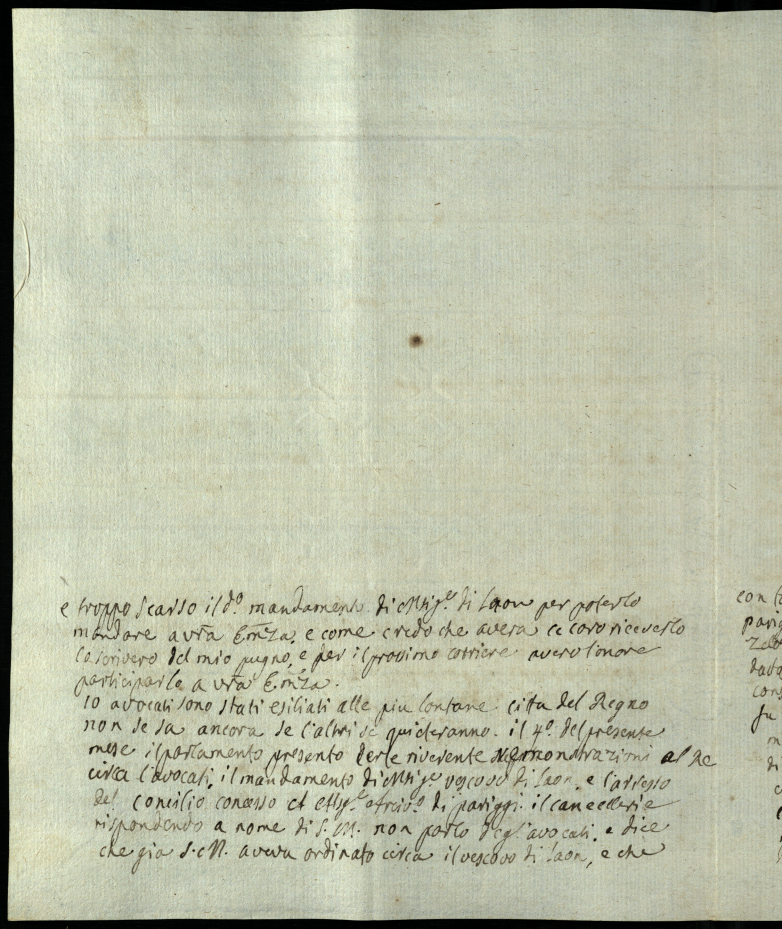 e troppo scarso il d.º mandamento di Msig.re di Laon per poterlo
mandare a vra Emza, e come credo che avera caro riceverlo
lo scrivero del mio pugno, e per il provimo corriere avero l'onore
participarle a vra Emza.
10 avocati sono stati esiliati alle piu lontane citta del Regno
non se sa ancora se l'altri se quieteranno. il 4º del presente
mese il parlamento presento le riverente remonstrazioni al Re
circa l'avocati, il mandamento di Msig.re vescovo di Laon, e l'arresto
del concilio concesso a di pariggi. il cancellerie
rispondendo a nome di S. M. non parlo degl'avocati, e dice
che gia S. M. aveva ordinato circa il vescovo di Laon, e che
con